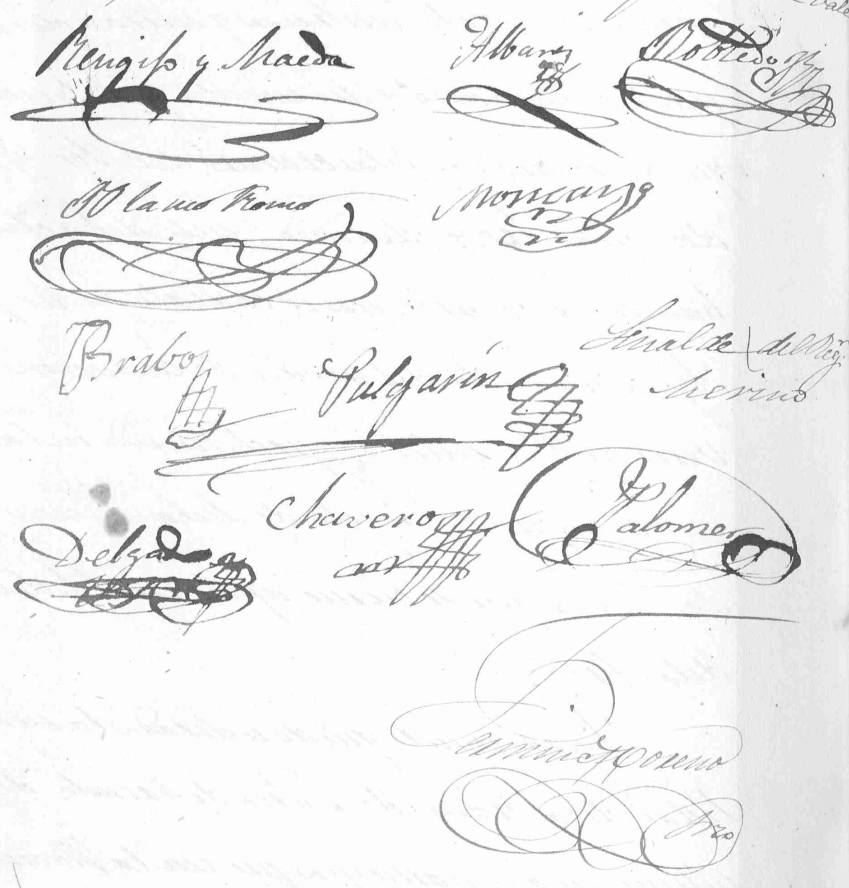 Rengifo y Maeda
Albarez
Robledo
Alamo Romo
Moncayo
Brabo
Pulgarín
Merino
Delgado
Chavero
Palomer
Fermin Moreno
Srio